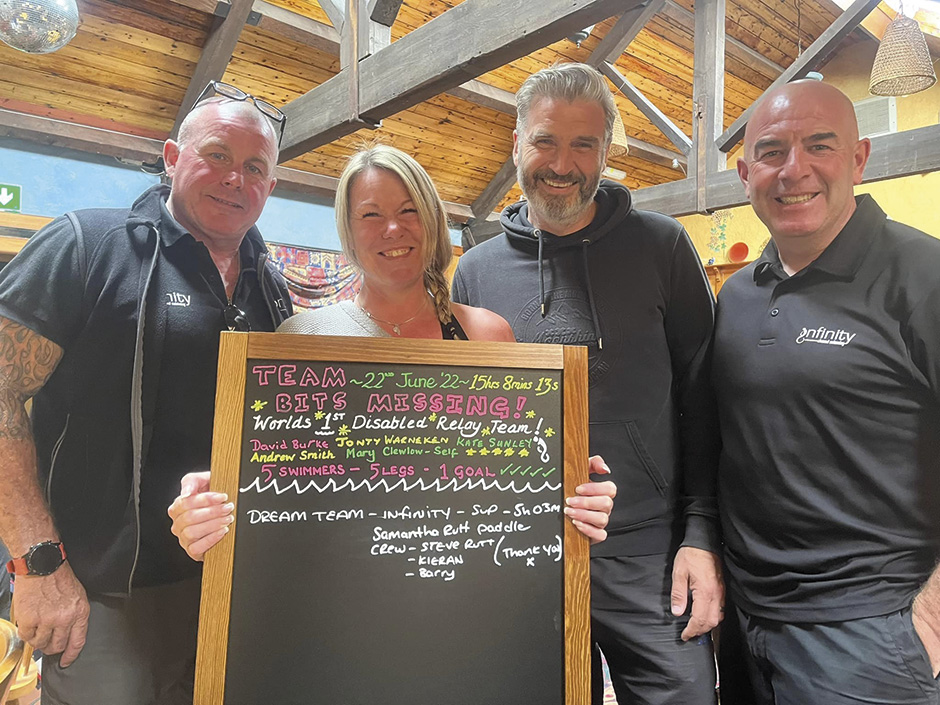 TEAM ~22ND June '22~15hrs 8mins 13s
BITS MISSING!
Worlds 1ST Disabled Relay Team!
David Burke Jonty Warneken Kate Sunley
Andrew Smith Mary Clewlow-Self
5 SWIMMERS - 5 LEGS - 1 GOAL ✓✓✓✓✓
DREAM TEAM - INFINITY - SUP - 5h03m
Samantha Rutt paddle
CREW - STEVE RUTT (Thank Yo)
- KIERAN x
- Barry
nfinity
infinity